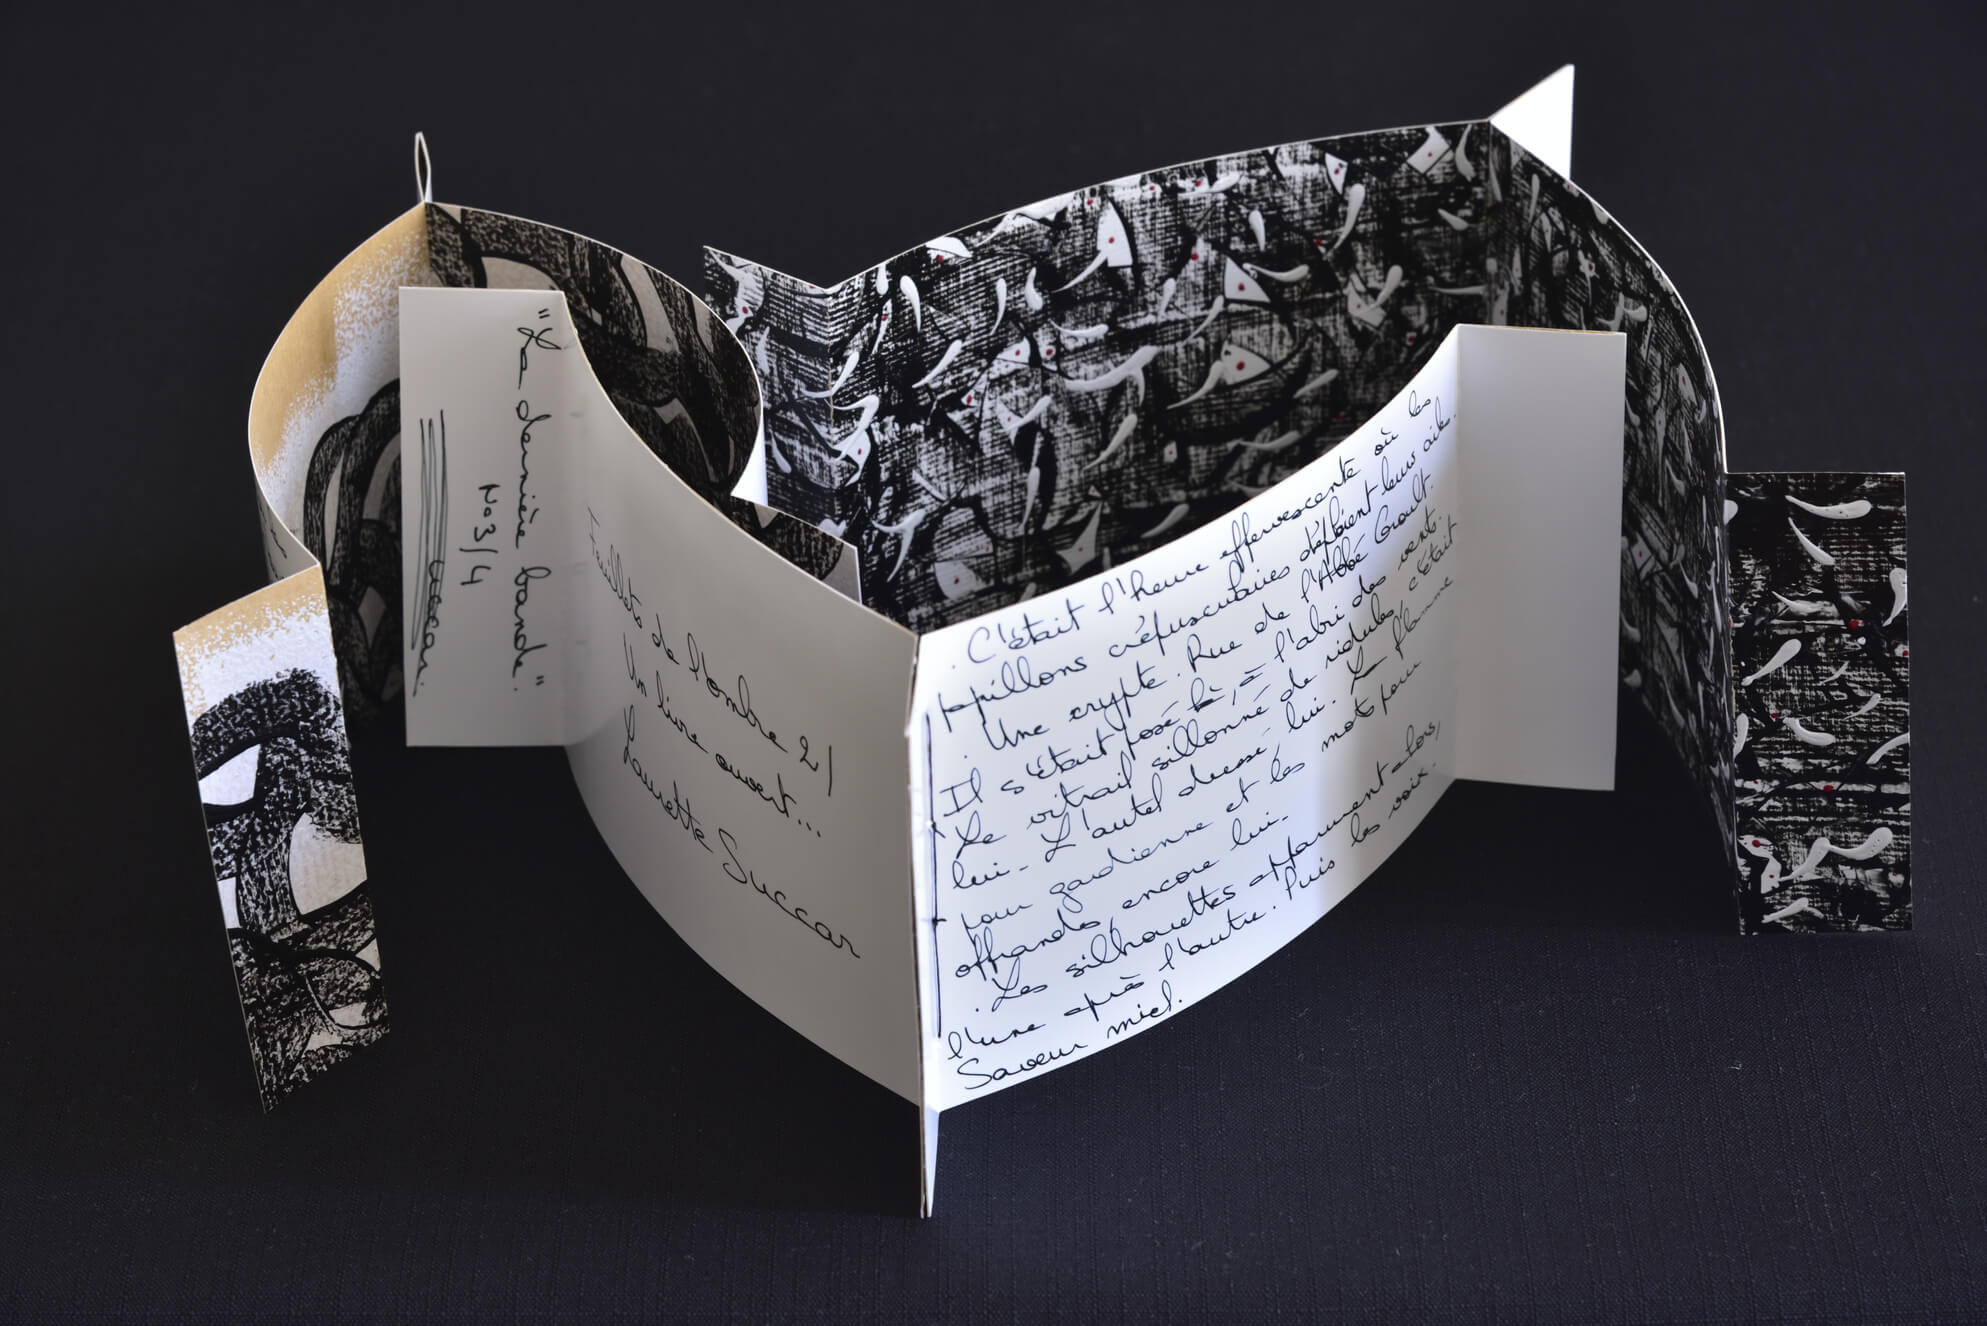 "La dernière bande."
N°3/4
Feuillets de l'Ombre 21
Un livre ouvert...
Laurette Succar
. C'était l'heure effervescente où les
papillons crépusculaires déploient leurs ailes.
. Une crypte. Rue de l'Abbé Groult.
Il s'était posé là, à l'abri des vents.
Le vitrail sillonné de ridules, c'était
lui. L'autel dressé, lui. La flamme
pour gardienne et les mots pour
offrandes, encore lui.
. Les silhouettes apparurent alors,
l'une après l'autre. Puis les voix.
Saveur miel.